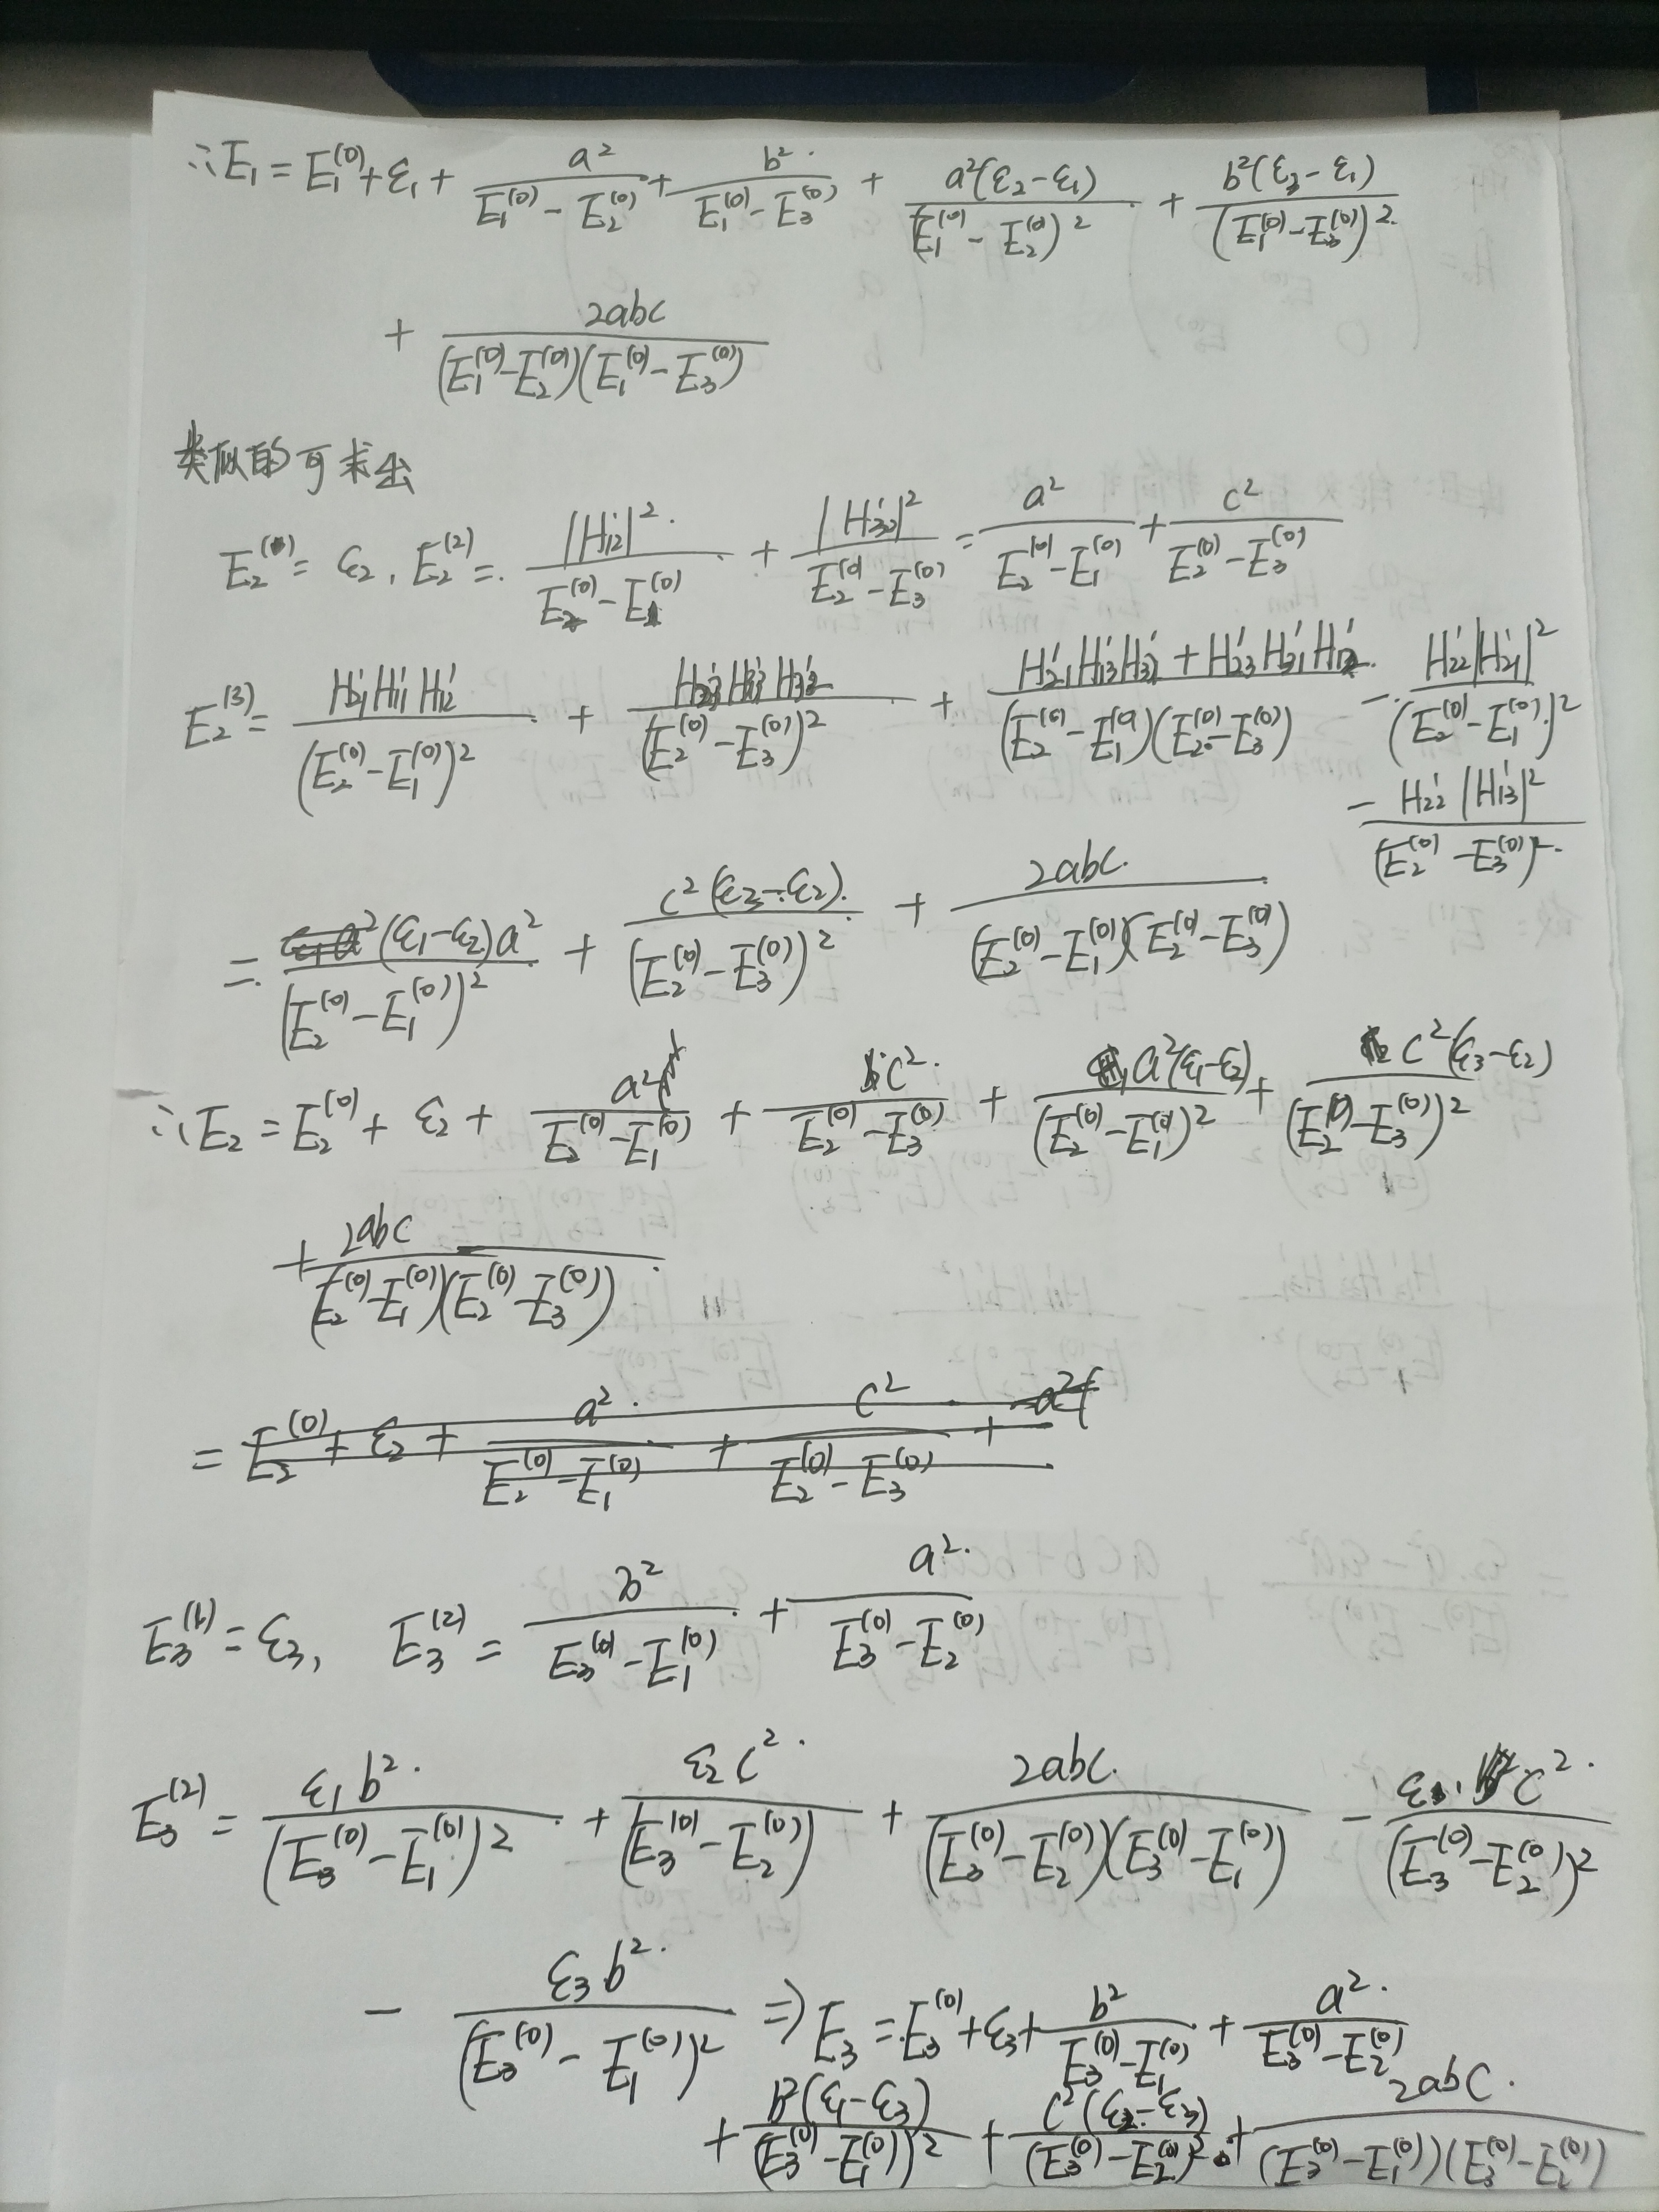 ∴ E₁ = E₁⁽⁰⁾ + ε₁ + a²/(E₁⁽⁰⁾ − E₂⁽⁰⁾) + b²/(E₁⁽⁰⁾ − E₃⁽⁰⁾) + a²(ε₂ − ε₁)/(E₁⁽⁰⁾ − E₂⁽⁰⁾)² + b²(ε₃ − ε₁)/(E₁⁽⁰⁾ − E₃⁽⁰⁾)²
+ 2abc/(E₁⁽⁰⁾ − E₂⁽⁰⁾)(E₁⁽⁰⁾ − E₃⁽⁰⁾)
类似的可求出
E₂⁽¹⁾ = ε₂, E₂⁽²⁾ = |H'₁₂|²/(E₂⁽⁰⁾ − E₁⁽⁰⁾) + |H'₃₂|²/(E₂⁽⁰⁾ − E₃⁽⁰⁾) = a²/(E₂⁽⁰⁾ − E₁⁽⁰⁾) + c²/(E₂⁽⁰⁾ − E₃⁽⁰⁾)
E₂⁽³⁾ = H'₂₁H'₁₁H'₁₂/(E₂⁽⁰⁾ − E₁⁽⁰⁾)² + H'₂₃H'₃₃H'₃₂/(E₂⁽⁰⁾ − E₃⁽⁰⁾)² + (H'₂₁H'₁₃H'₃₂ + H'₂₃H'₃₁H'₁₂)/(E₂⁽⁰⁾ − E₁⁽⁰⁾)(E₂⁽⁰⁾ − E₃⁽⁰⁾) − H'₂₂|H'₂₁|²/(E₂⁽⁰⁾ − E₁⁽⁰⁾)²
− H'₂₂|H'₁₃|²/(E₂⁽⁰⁾ − E₃⁽⁰⁾)²
= (ε₁ − ε₂)a²/(E₂⁽⁰⁾ − E₁⁽⁰⁾)² + c²(ε₃ − ε₂)/(E₂⁽⁰⁾ − E₃⁽⁰⁾)² + 2abc/(E₂⁽⁰⁾ − E₁⁽⁰⁾)(E₂⁽⁰⁾ − E₃⁽⁰⁾)
∴ E₂ = E₂⁽⁰⁾ + ε₂ + a²/(E₂⁽⁰⁾ − E₁⁽⁰⁾) + c²/(E₂⁽⁰⁾ − E₃⁽⁰⁾) + a²(ε₁ − ε₂)/(E₂⁽⁰⁾ − E₁⁽⁰⁾)² + c²(ε₃ − ε₂)/(E₂⁽⁰⁾ − E₃⁽⁰⁾)²
+ 2abc/(E₂⁽⁰⁾ − E₁⁽⁰⁾)(E₂⁽⁰⁾ − E₃⁽⁰⁾)
= E₂⁽⁰⁾ + ε₂ + a²/(E₂⁽⁰⁾ − E₁⁽⁰⁾) + c²/(E₂⁽⁰⁾ − E₃⁽⁰⁾) + a²(
E₃⁽¹⁾ = ε₃, E₃⁽²⁾ = b²/(E₃⁽⁰⁾ − E₁⁽⁰⁾) + a²/(E₃⁽⁰⁾ − E₂⁽⁰⁾)
E₃⁽²⁾ = ε₁b²/(E₃⁽⁰⁾ − E₁⁽⁰⁾)² + ε₂c²/(E₃⁽⁰⁾ − E₂⁽⁰⁾) + 2abc/(E₃⁽⁰⁾ − E₂⁽⁰⁾)(E₃⁽⁰⁾ − E₁⁽⁰⁾) − ε₃c²/(E₃⁽⁰⁾ − E₂⁽⁰⁾)²
− ε₃b²/(E₃⁽⁰⁾ − E₁⁽⁰⁾)² ⇒ E₃ = E₃⁽⁰⁾ + ε₃ + b²/(E₃⁽⁰⁾ − E₁⁽⁰⁾) + a²/(E₃⁽⁰⁾ − E₂⁽⁰⁾)
+ b²(ε₁ − ε₃)/(E₃⁽⁰⁾ − E₁⁽⁰⁾)² + c²(ε₂ − ε₃)/(E₃⁽⁰⁾ − E₂⁽⁰⁾)² + 2abc/(E₃⁽⁰⁾ − E₁⁽⁰⁾)(E₃⁽⁰⁾ − E₂⁽⁰⁾)